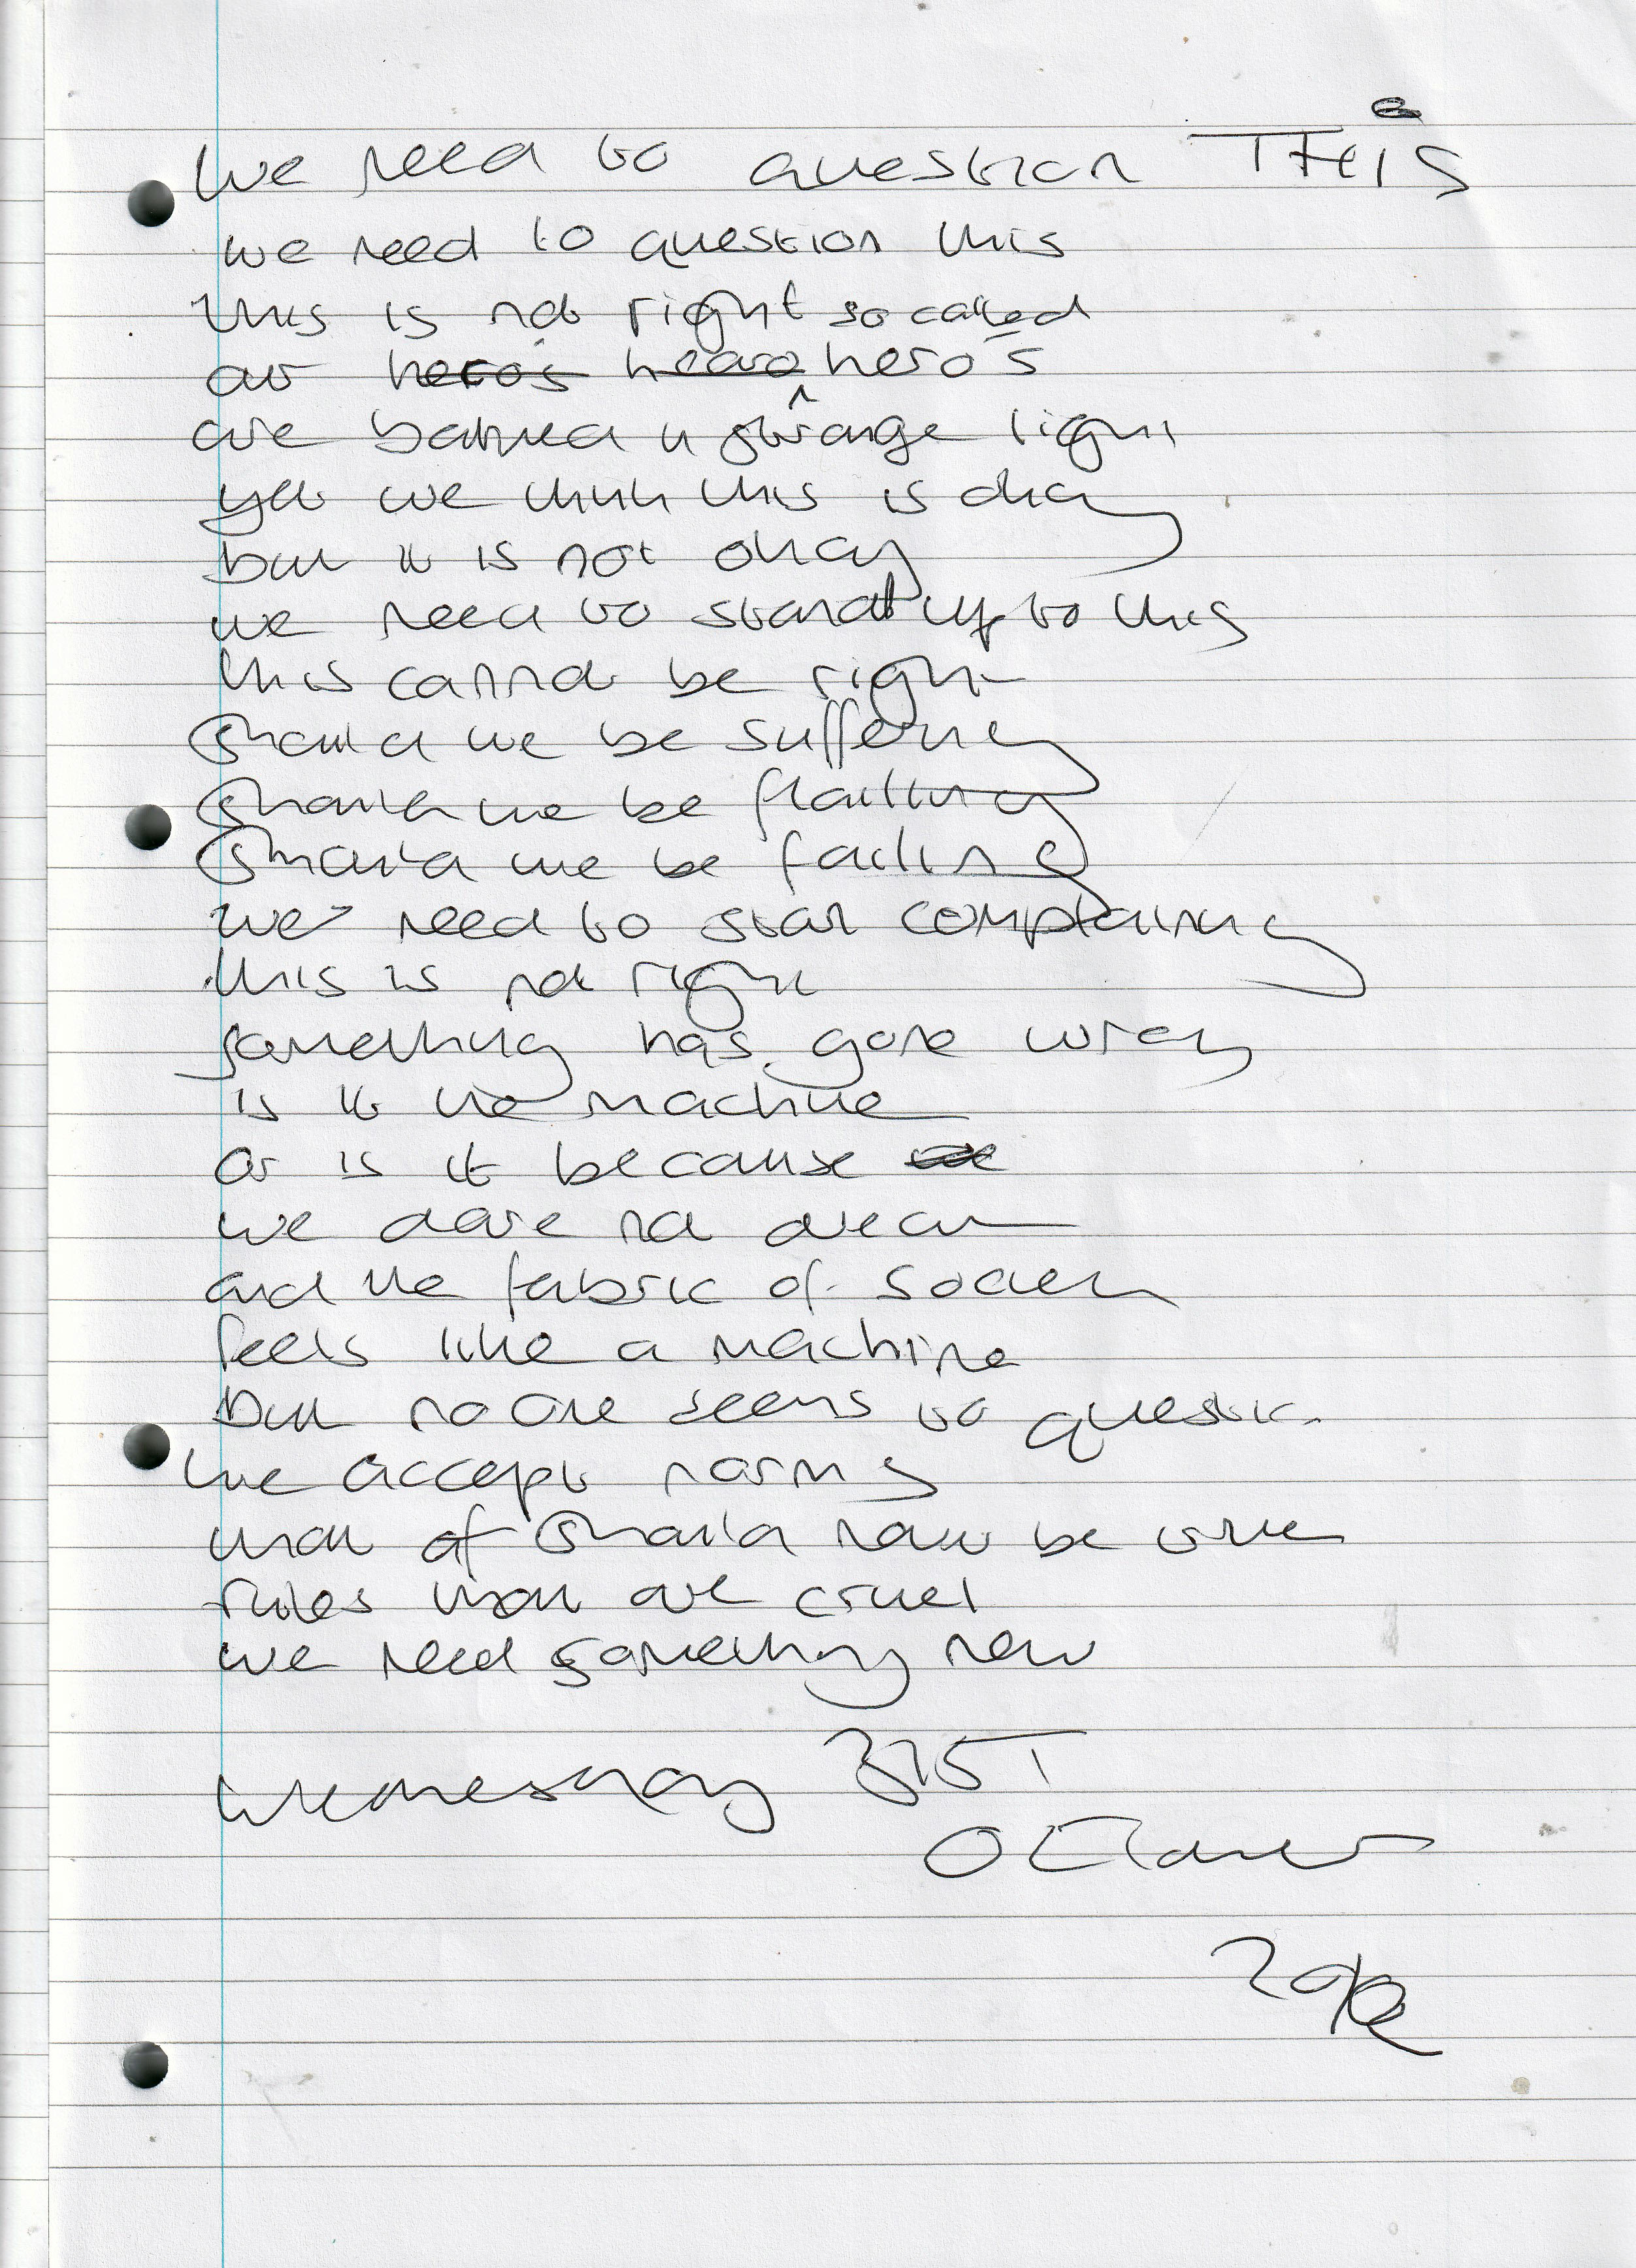 We need to question THIS
we need to question this
this is not right so called
our heros hero heros
are bathed in strange light
yet we think this is okay
but it is not okay
we need to stand up to this
this cannot be right
should we be suffering
should we be flailing
should we be failing
we need to start complaining
this is not right
something has gone wrong
is it the machine
or is it because
we dare not dream
and the fabric of society
feels like a machine
but no one seems to question
we accept norms
that of should now be
rules that are cruel
we need something new
Wednesday 31ST
October